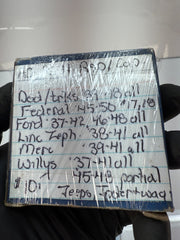 Dod/trks 37-48 all
Federal 45-50 #17,18
Ford 37-42 46-48 all
Linc Zeph 38-41 all
Merc 39-41 all
Willys 37-41 all
45-48 partial
$10
Jeeps